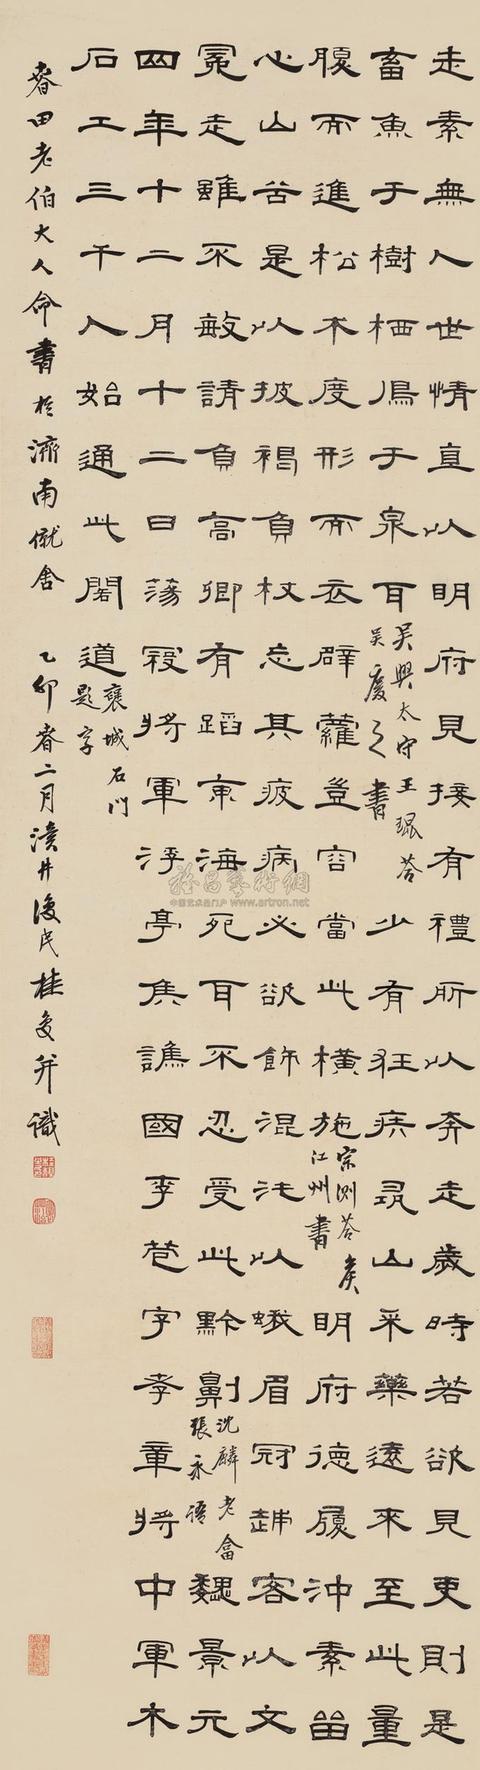 走素無人世情直以明府見接有禮所以奔走歲時若欲見吏則是
畜魚于樹栖鳥于泉耳吳興太守王琨荅吳慶之書少有狂疾尋山采藥遠來至此量
腹而進松朮度形而衣薜蘿登容當此橫施宗測荅矦江州書明府德履沖素留
心山谷是以披褐負杖忘其疲病必欲飾混沌以蛾眉冠越客以文
冕走雖不敏請負高卿有蹈東海死耳不忍受此黔劓沈麟士荅張永語魏景元
四年十二月十二日蕩寇將軍浮亭矦譙國李苞字孝章將中軍木
石工三千人始通此閣道褒城石門題字
春田老伯大人命書於濟南僦舍 乙卯春二月瀆井復民桂馥并識
雅昌藝術網
中国艺术品门户网 www.artron.net